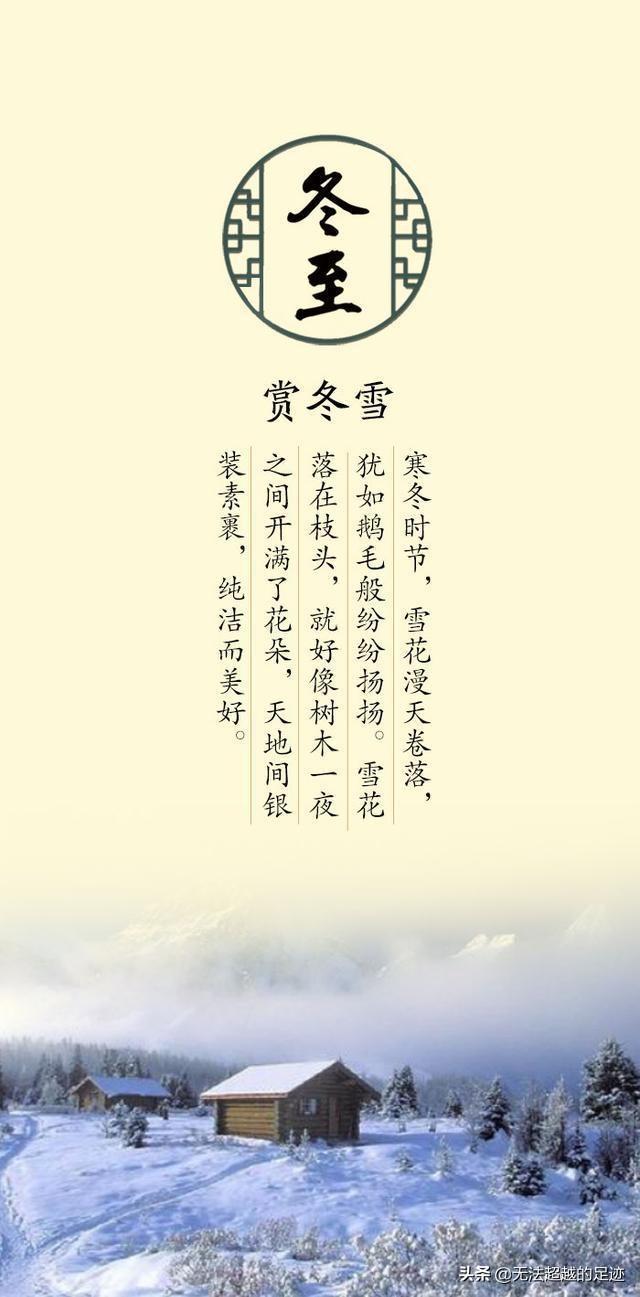 冬至
赏冬雪
寒冬时节，雪花漫天卷落，
犹如鹅毛般纷纷扬扬。雪花
落在枝头，就好像树木一夜
之间开满了花朵，天地间银
装素裹，纯洁而美好。
头条 @无法超越的足迹